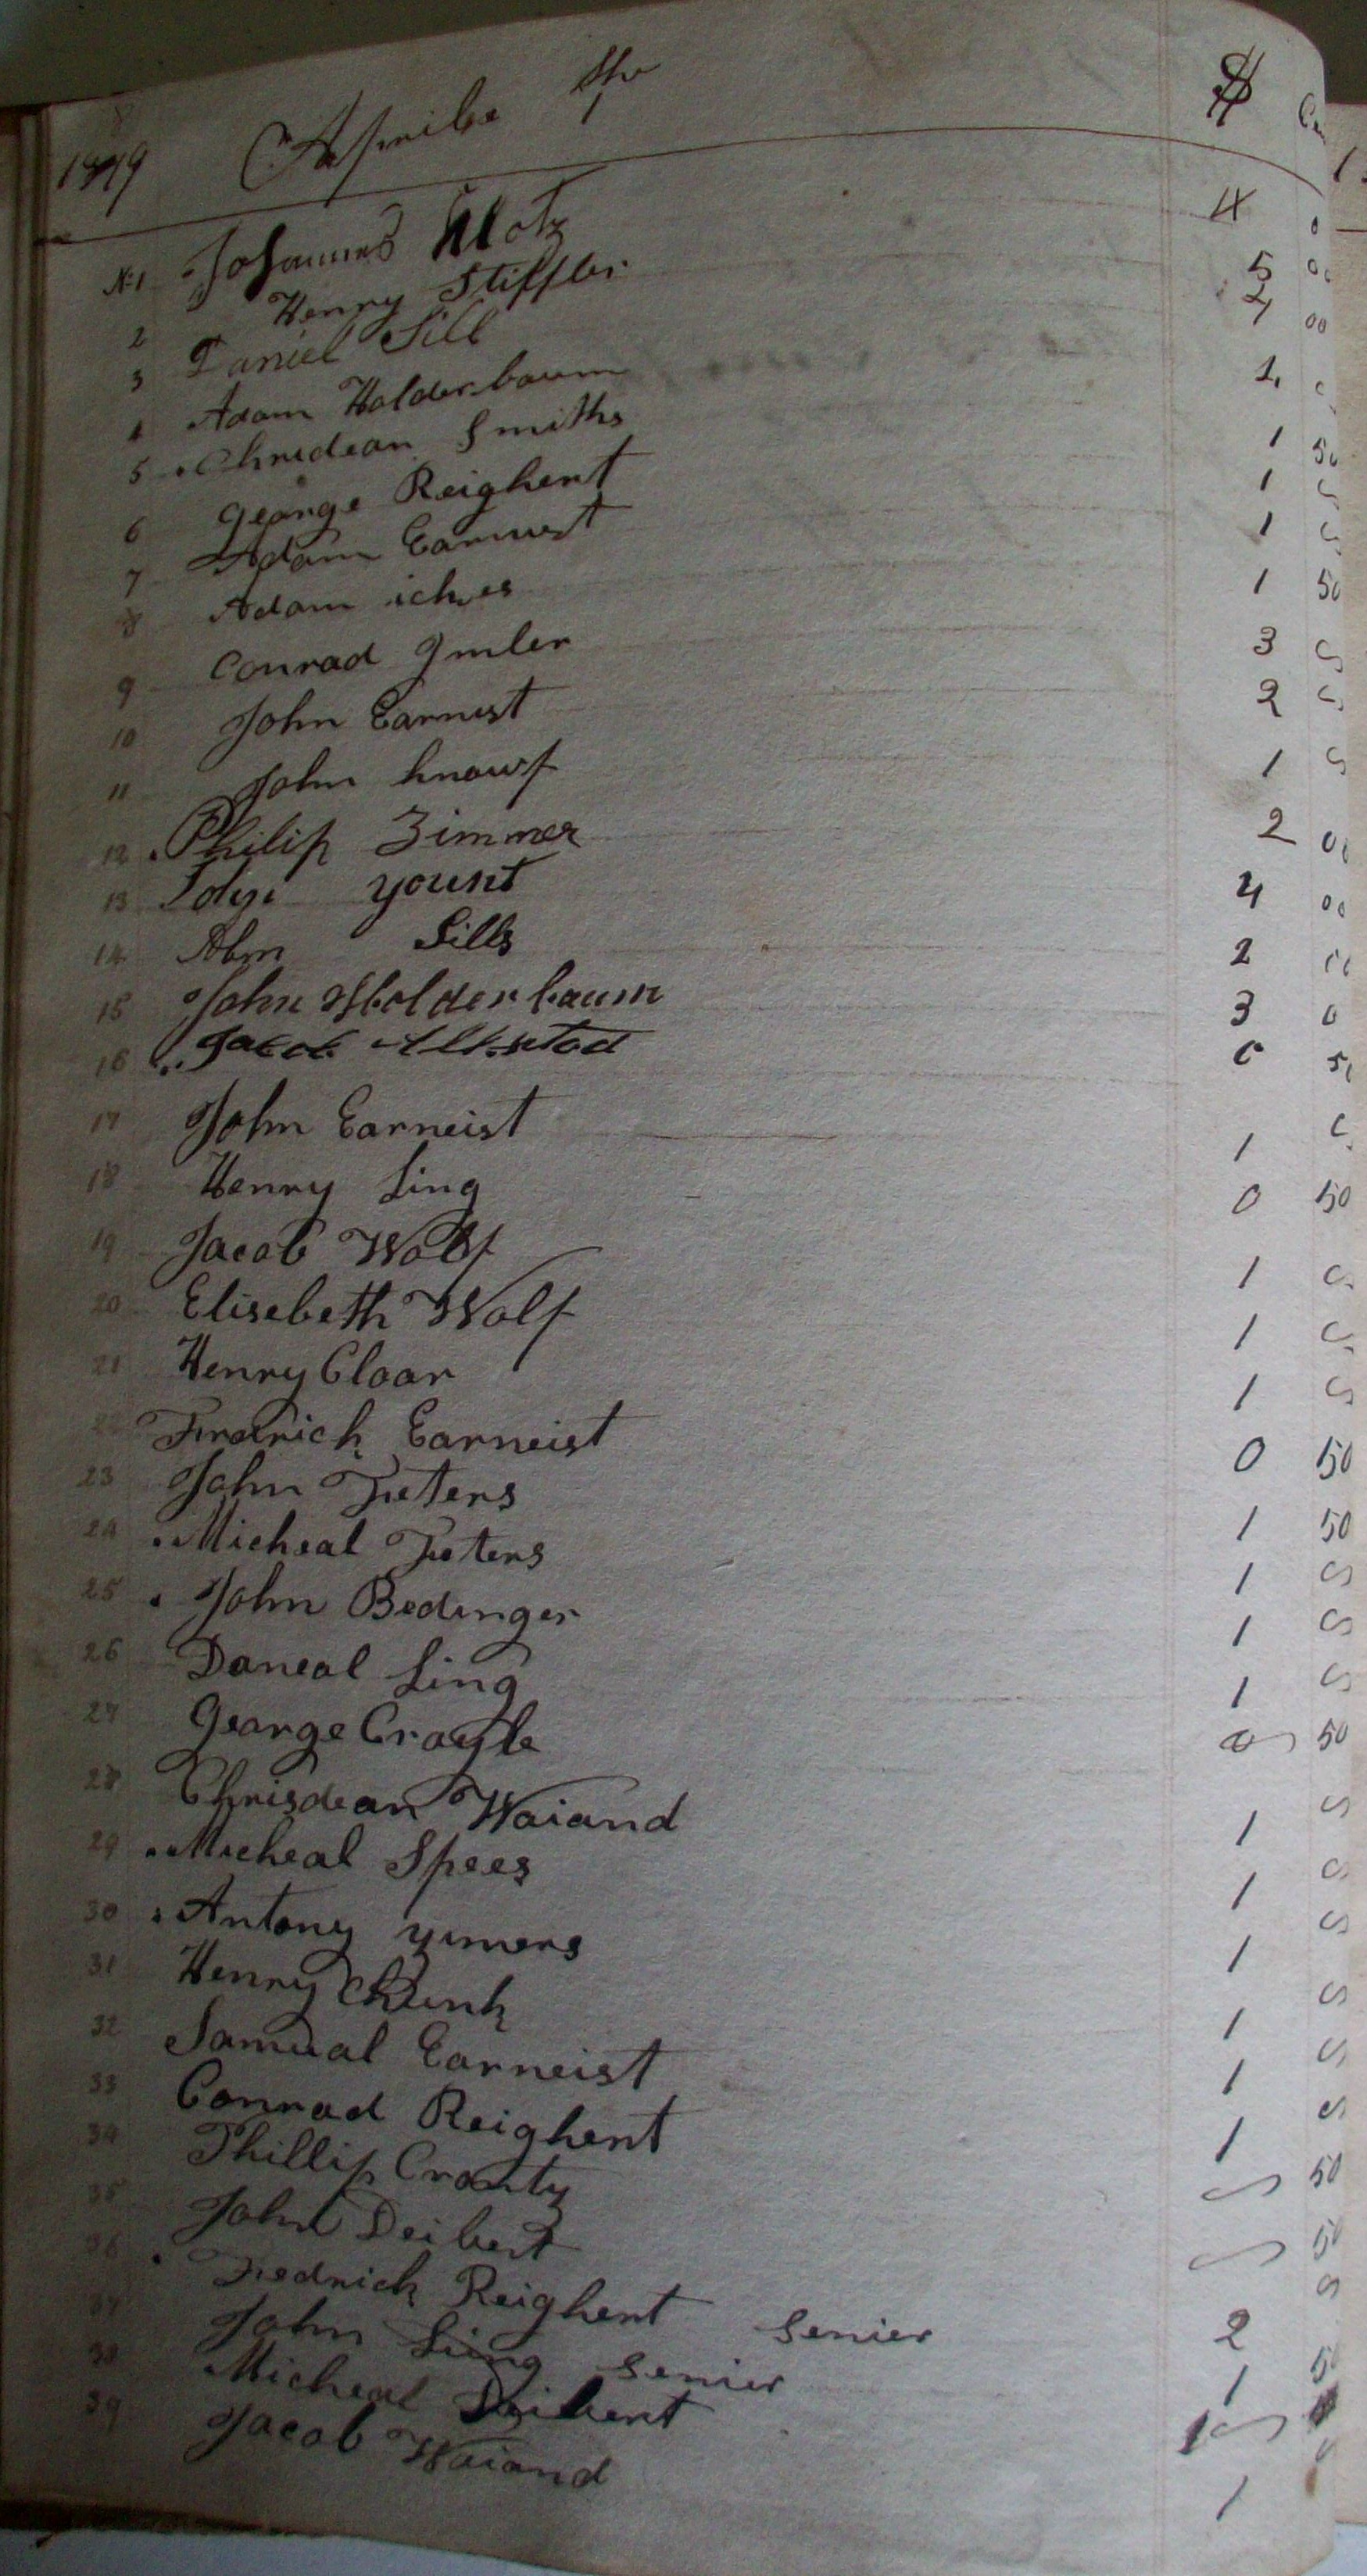 1819 the 1 $
No 1 Johannes Klotz 4 0
2 Henry Stiffler 5 00
3 Daniel Sill 2 00
4 Adam Holderbaum 1
5 Chrisdean Smiths 1 50
6 George Reighert 1
7 Adam Earnest 1
8 Adam iches 1 50
9 Conrad Imler 3
10 John Earnest 2
11 John knowf 1
12 Philip Zimmer 2 00
13 yount 4 00
14 Abm Sills 2
15 John Holderbaum 3 0
16 Jacob 0 50
17 John Earneist 1
18 Henry Ling 0 50
19 Jacob Wolf 1
20 Elisebeth Wolf 1
21 Henry Cloar 1
22 Fredrich Earneist 0 50
23 John Feters 1 50
24 Micheal Feters 1
25 John Bedinger 1
26 Daneal Ling 1
27 George Croyle 0 50
28 Chrisdean Waiand 1
29 Micheal Spees 1
30 Antony yimers 1
31 Henry Chunk 1
32 Samual Earneist 1
33 Conrad Reighert 1
34 Phillip Crouty 50
35 John Deibert 50
36 Fredrick Reighert Senier 2
37 John Ling Senier 1 50
38 Micheal Deibert 1
39 Jacob Waiand 1